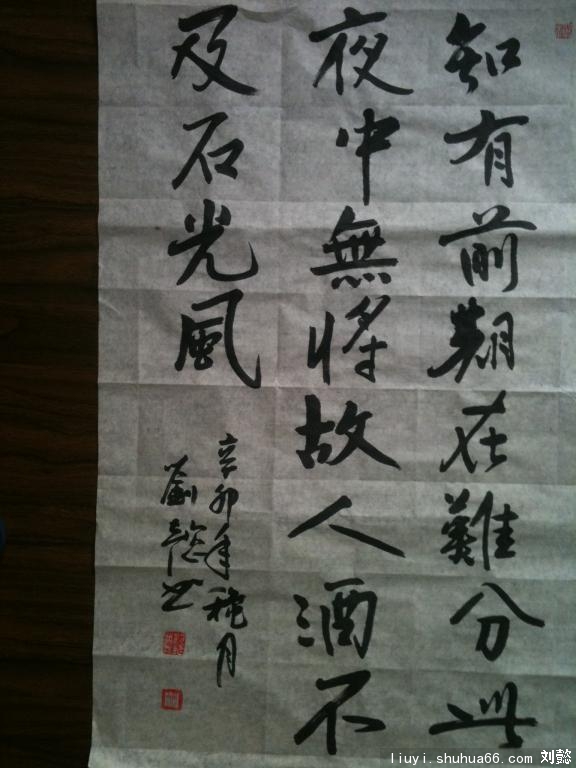 知有前期在難分此
夜中無將故人酒不
及石光風
辛卯年月
劉懿书
liuyi.shuhua66.com 刘懿